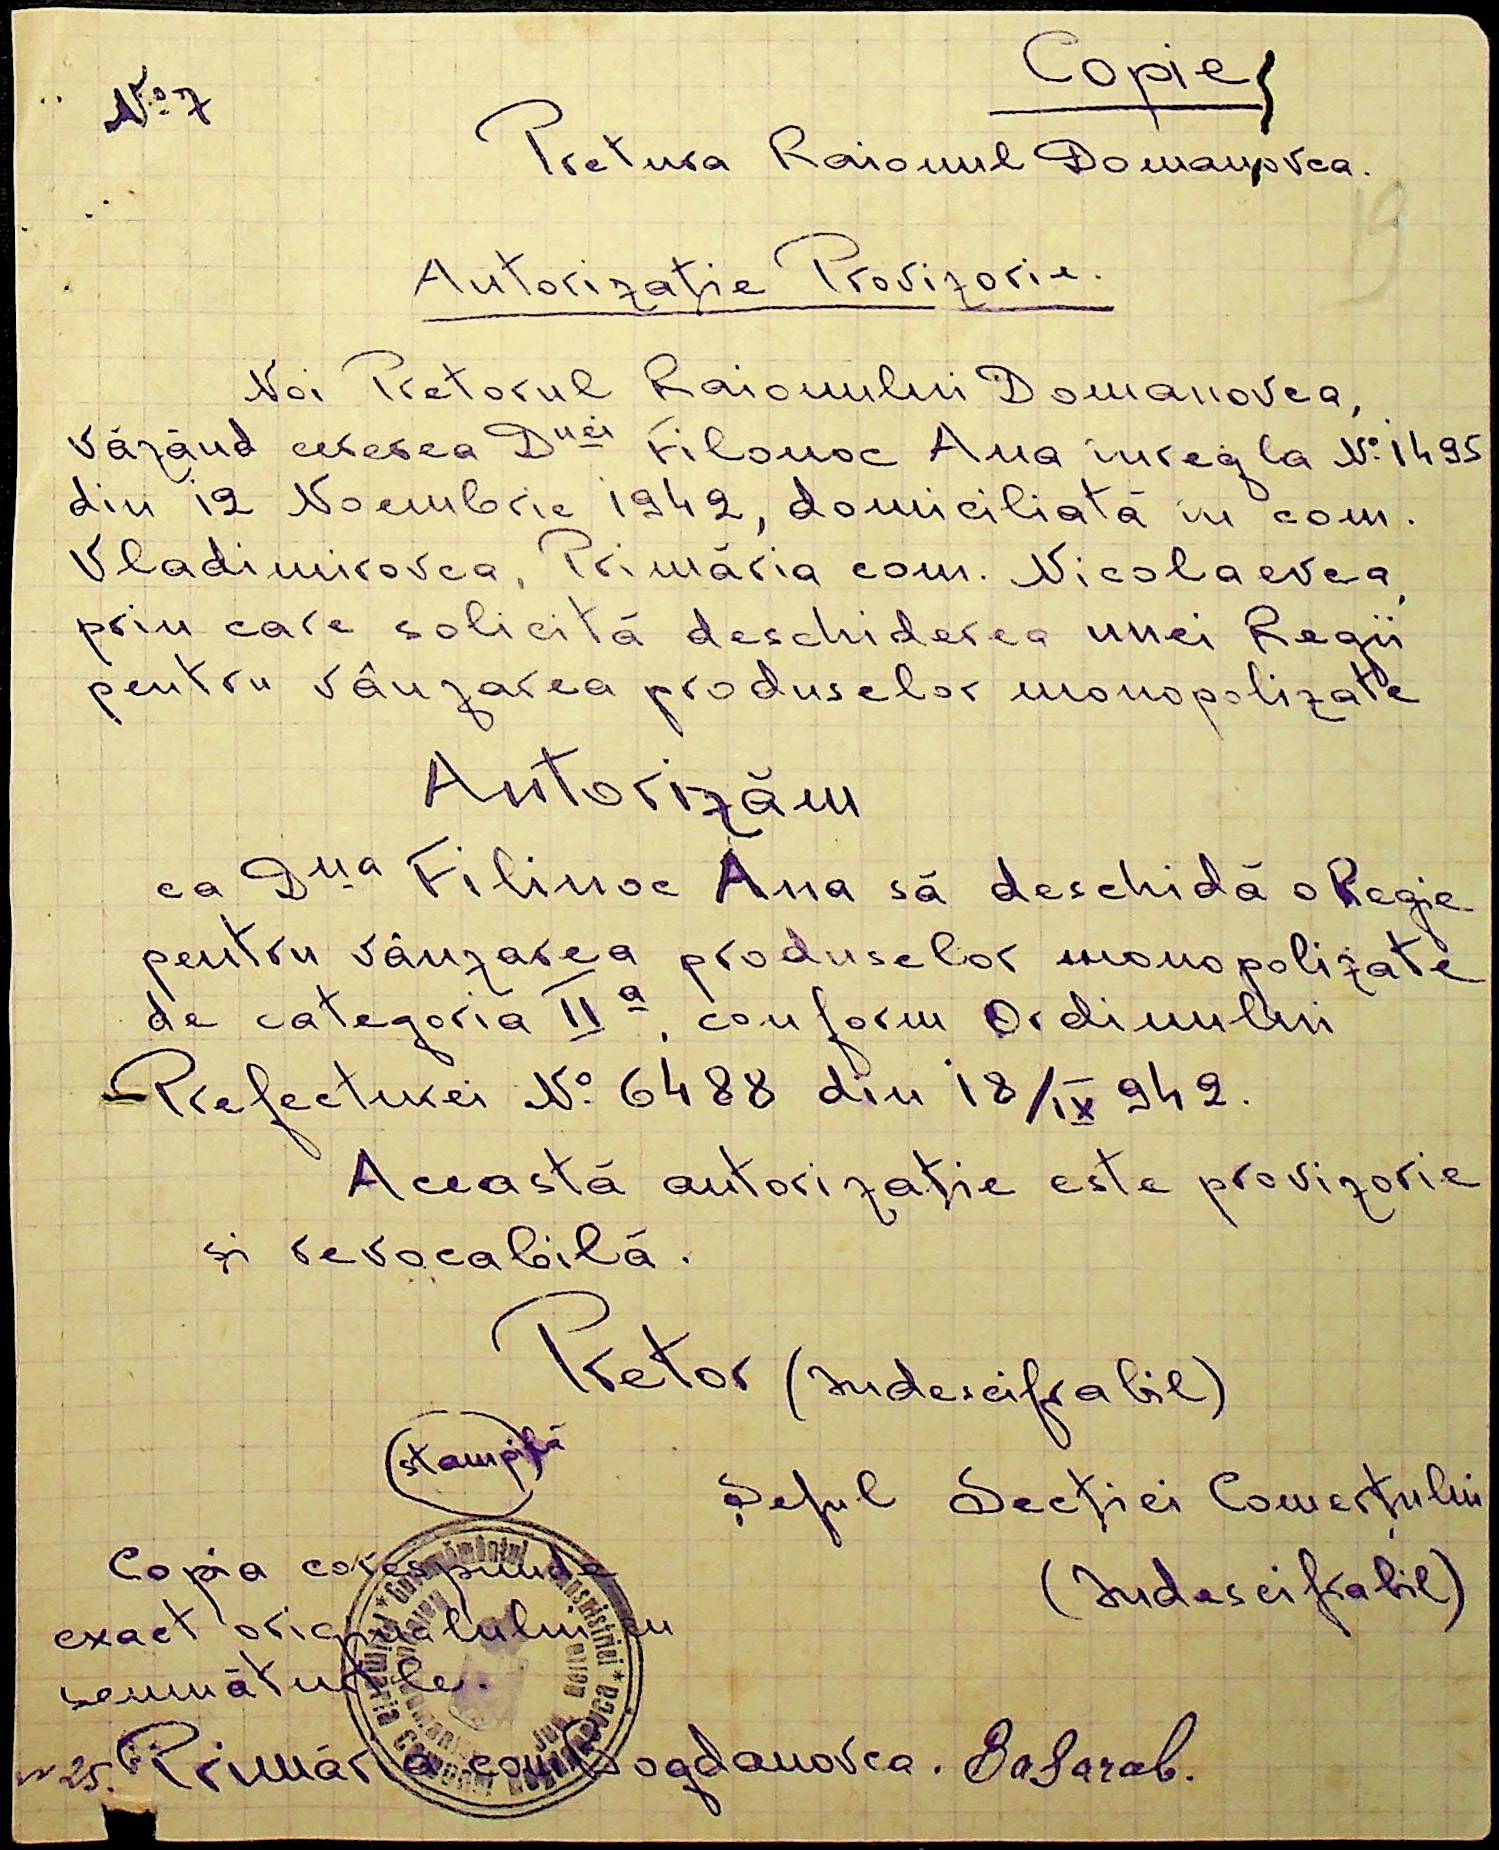 Copie
No 7
Pretura Raionul Domanovca.
19
Autorizație Provizorie.
Noi Pretorul Raionului Domanovca,
văzând cererea Dnei Filonoc Ana înreg la No 1495
din 12 Noembrie 1942, domiciliată in com.
Vladimirovca, Primăria com. Nicolaevca,
prin care solicită deschiderea unei Regii
pentru vânzarea produselor monopolizate
Autorizăm
ca Dna Filinoc Ana să deschidă o Regie
pentru vânzarea produselor monopolizate
de categoria II a, conform Ordinului
Prefecturei No 6488 din 18/IX 942.
Această autorizație este provizorie
și revocabilă.
Pretor (Indescifrabil)
(stampilă)
Șeful Secției Comerțului
(Indescifrabil)
Copia corespunde
exact originalului cu
semnăturile.
25. Primăria com Bogdanovca. Basarab.
Guvernământul Transnistriei * Primăria Comunei Bogdanovca *